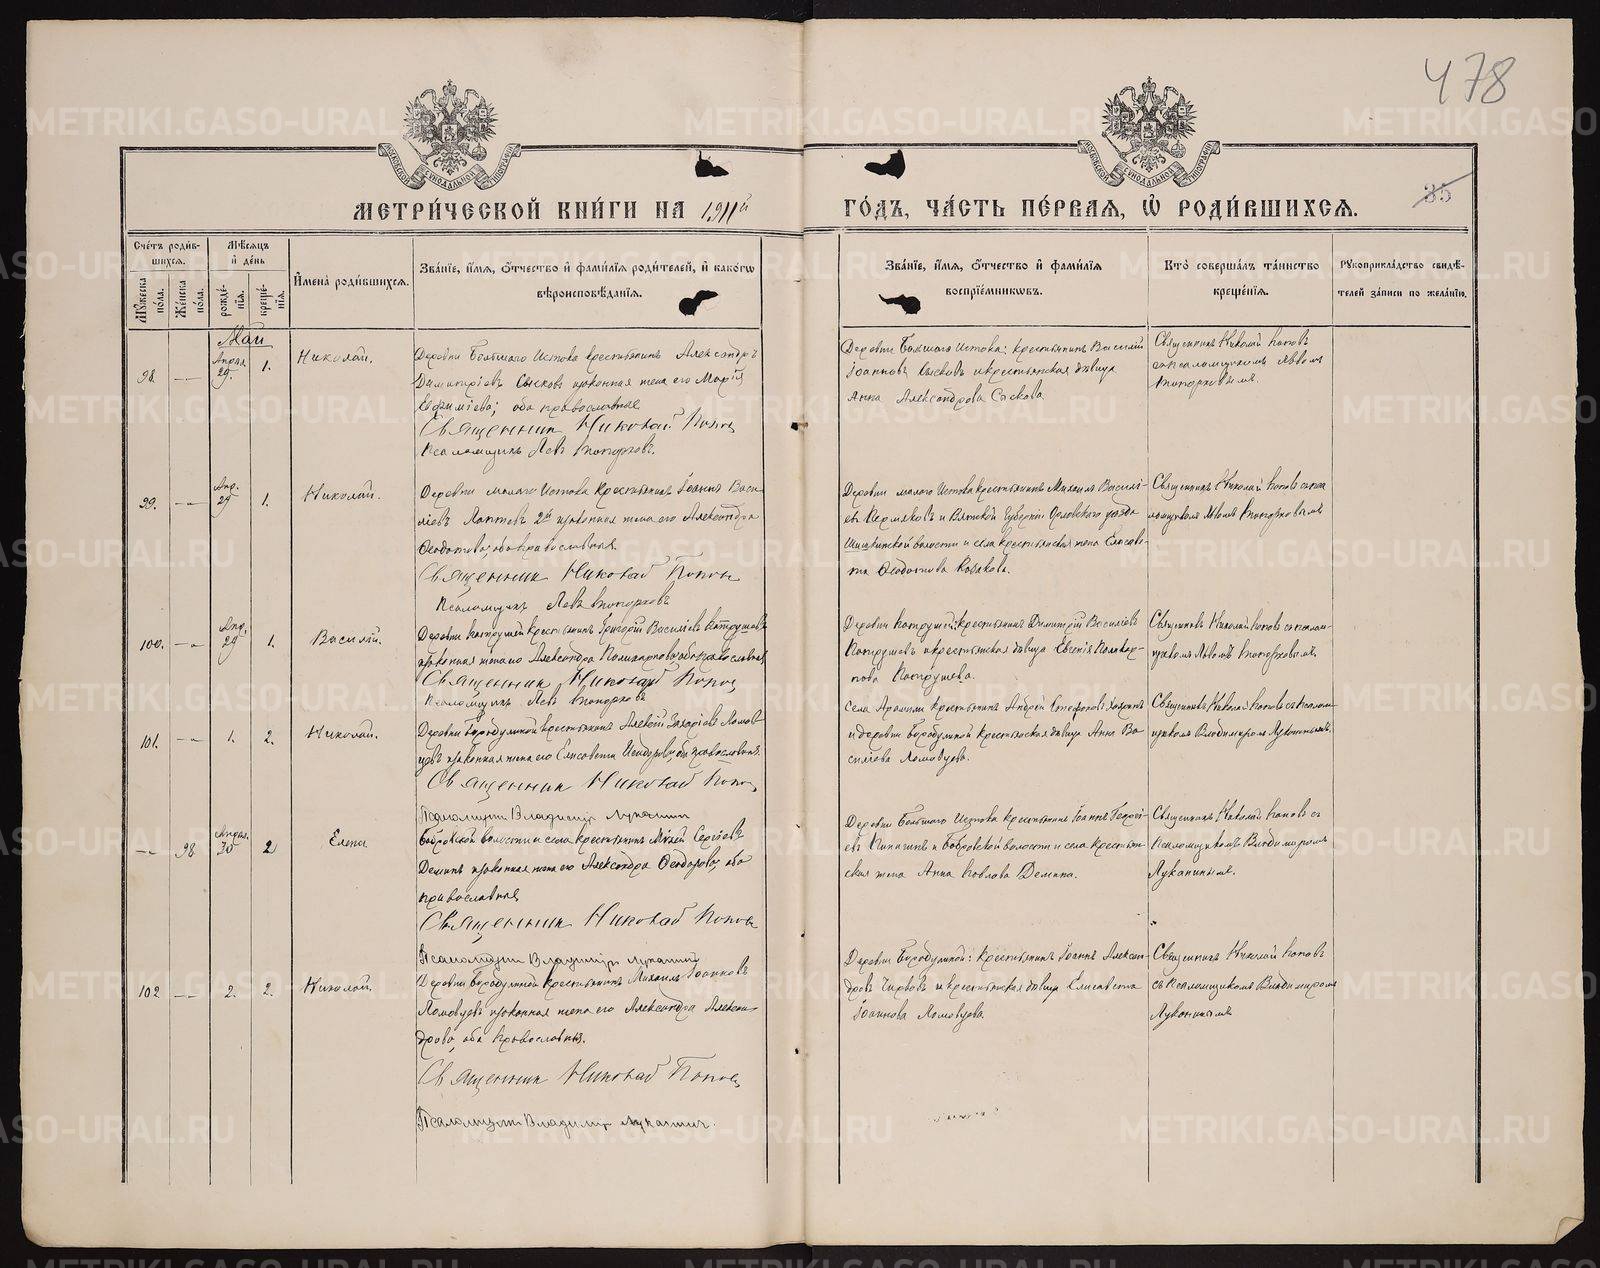 478
МОСКОВСКОЙ СѴНОДАЛЬНОЙ ТИПОГРАФІИ
МОСКОВСКОЙ СѴНОДАЛЬНОЙ ТИПОГРАФІИ
МЕТРИ́ЧЕСКОЙ КНИ́ГИ НА 1911й
ГО́ДЪ, ЧА́СТЬ ПЕ́РВАЯ, Ѡ҆ РОДИ́ВШИХСЯ.
35
Сче́тъ роди́в-
шихся.
Мѣ́сяцъ
и҆ де́нь
Мꙋ́жеска по́ла.
Же́нска по́ла.
рожде́-нїя.
креще́-нїя.
И҆мена̀ роди́вшихся.
Зва́нїе, и҆́мя, ѻ҆́тчество и҆ фами́лїя роди́телей, и҆ како́гѡ
вѣроисповѣ́данїя.
Зва́нїе, и҆́мя, ѻ҆́тчество и҆ фами́лїя
воспрїе́мникѡвъ.
Кто̀ соверша́лъ та́инство
креще́нїя.
Рꙋкоприкла́дство свидѣ́-
телей за́писи по жела́нїю.
Май
98. Апрѣл. 29. 1. Николай.
Деревни Большого Истока крестьянинъ Александръ
Димитріевъ Сысковъ и законная жена его Марія
Евфиміева; оба православные
Священникъ Николай Попов
Псаломщикъ Левъ Топорковъ.
Деревни Большого Истока: крестьянинъ Василій
Іоанновъ Сысковъ и крестьянская дѣвица
Анна Александрова Сыскова
Священникъ Николай Поповъ
съ псаломщикомъ Львомъ
Топорковымъ.
99. Апр. 29 1. Николай.
Деревни Малого Истока крестьянинъ Іоаннъ Васи-
ліевъ Лаптевъ 2й и законная жена его Александра
Ѳеодотова; оба православные.
Священник Николай Попов
Псаломщикъ Левъ Топорковъ
Деревни Малого Истока крестьянинъ Михаилъ Василі-
евъ Пермяковъ и Вятской губерніи Орловскаго уѣзда
волости и села крестьянская жена Елисаве-
та Ѳеодотова
Священникъ Николай Поповъ съ пса-
ломщикомъ Львомъ Топорковымъ
100. Апр. 29 1. Василій.
Деревни крестьянинъ Григорій Василіевъ Патрушевъ
и законная жена его Александра Поликарпова; оба православные
Священник Николай Попов
Псаломщикъ Левъ Топорковъ
Деревни крестьянинъ Димитрій Василіевъ
Патрушевъ и крестьянская дѣвица Евгенія Поликар-
пова Патрушева.
Священникъ Николай Поповъ съ псалом-
щикомъ Львомъ Топорковымъ.
101. 1. 2. Николай.
Деревни Бородулиной крестьянинъ Алексій Захаріевъ Ломов-
цевъ и законная жена его Елисавета Исидорова; оба православные.
Священник Николай Попов
Псаломщик Владимир Луканин
Села Арамили крестьянинъ Андрей Стефановъ
и деревни Бородулиной крестьянская дѣвица Анна Ва-
силіева Ломовцева.
Священникъ Николай Поповъ съ псалом-
щикомъ Владимиромъ Луканинымъ.
98 Апрѣл. 30 2 Елена
Бобровской волости и села крестьянинъ Сергіевъ
Деминъ и законная жена его Александра Ѳеодорова, оба
православные
Священник Николай Попов
Псаломщик Владимир Луканин
Деревни Большого Истока крестьянинъ Іоаннъ Георгі-
евъ и Бобровской волости и села крестьян-
ская жена Анна Павлова Демина.
Священникъ Николай Поповъ съ
псаломщикомъ Владимиромъ
Луканинымъ.
102 2. 2. Николай.
Деревни Бородулиной крестьянинъ Михаилъ Іоанновъ
Ломовцевъ и законная жена его Александра Алексан-
дрова, оба православные.
Священник Николай Попов
Псаломщик Владимир Луканин.
Деревни Бородулиной: крестьянинъ Іоаннъ Алексан-
дровъ и крестьянская дѣвица Елисавета
Іоаннова Ломовцева.
Священникъ Николай Поповъ
съ псаломщикомъ Владимиромъ
Луканинымъ
METRIKI.GASO-URAL.RU